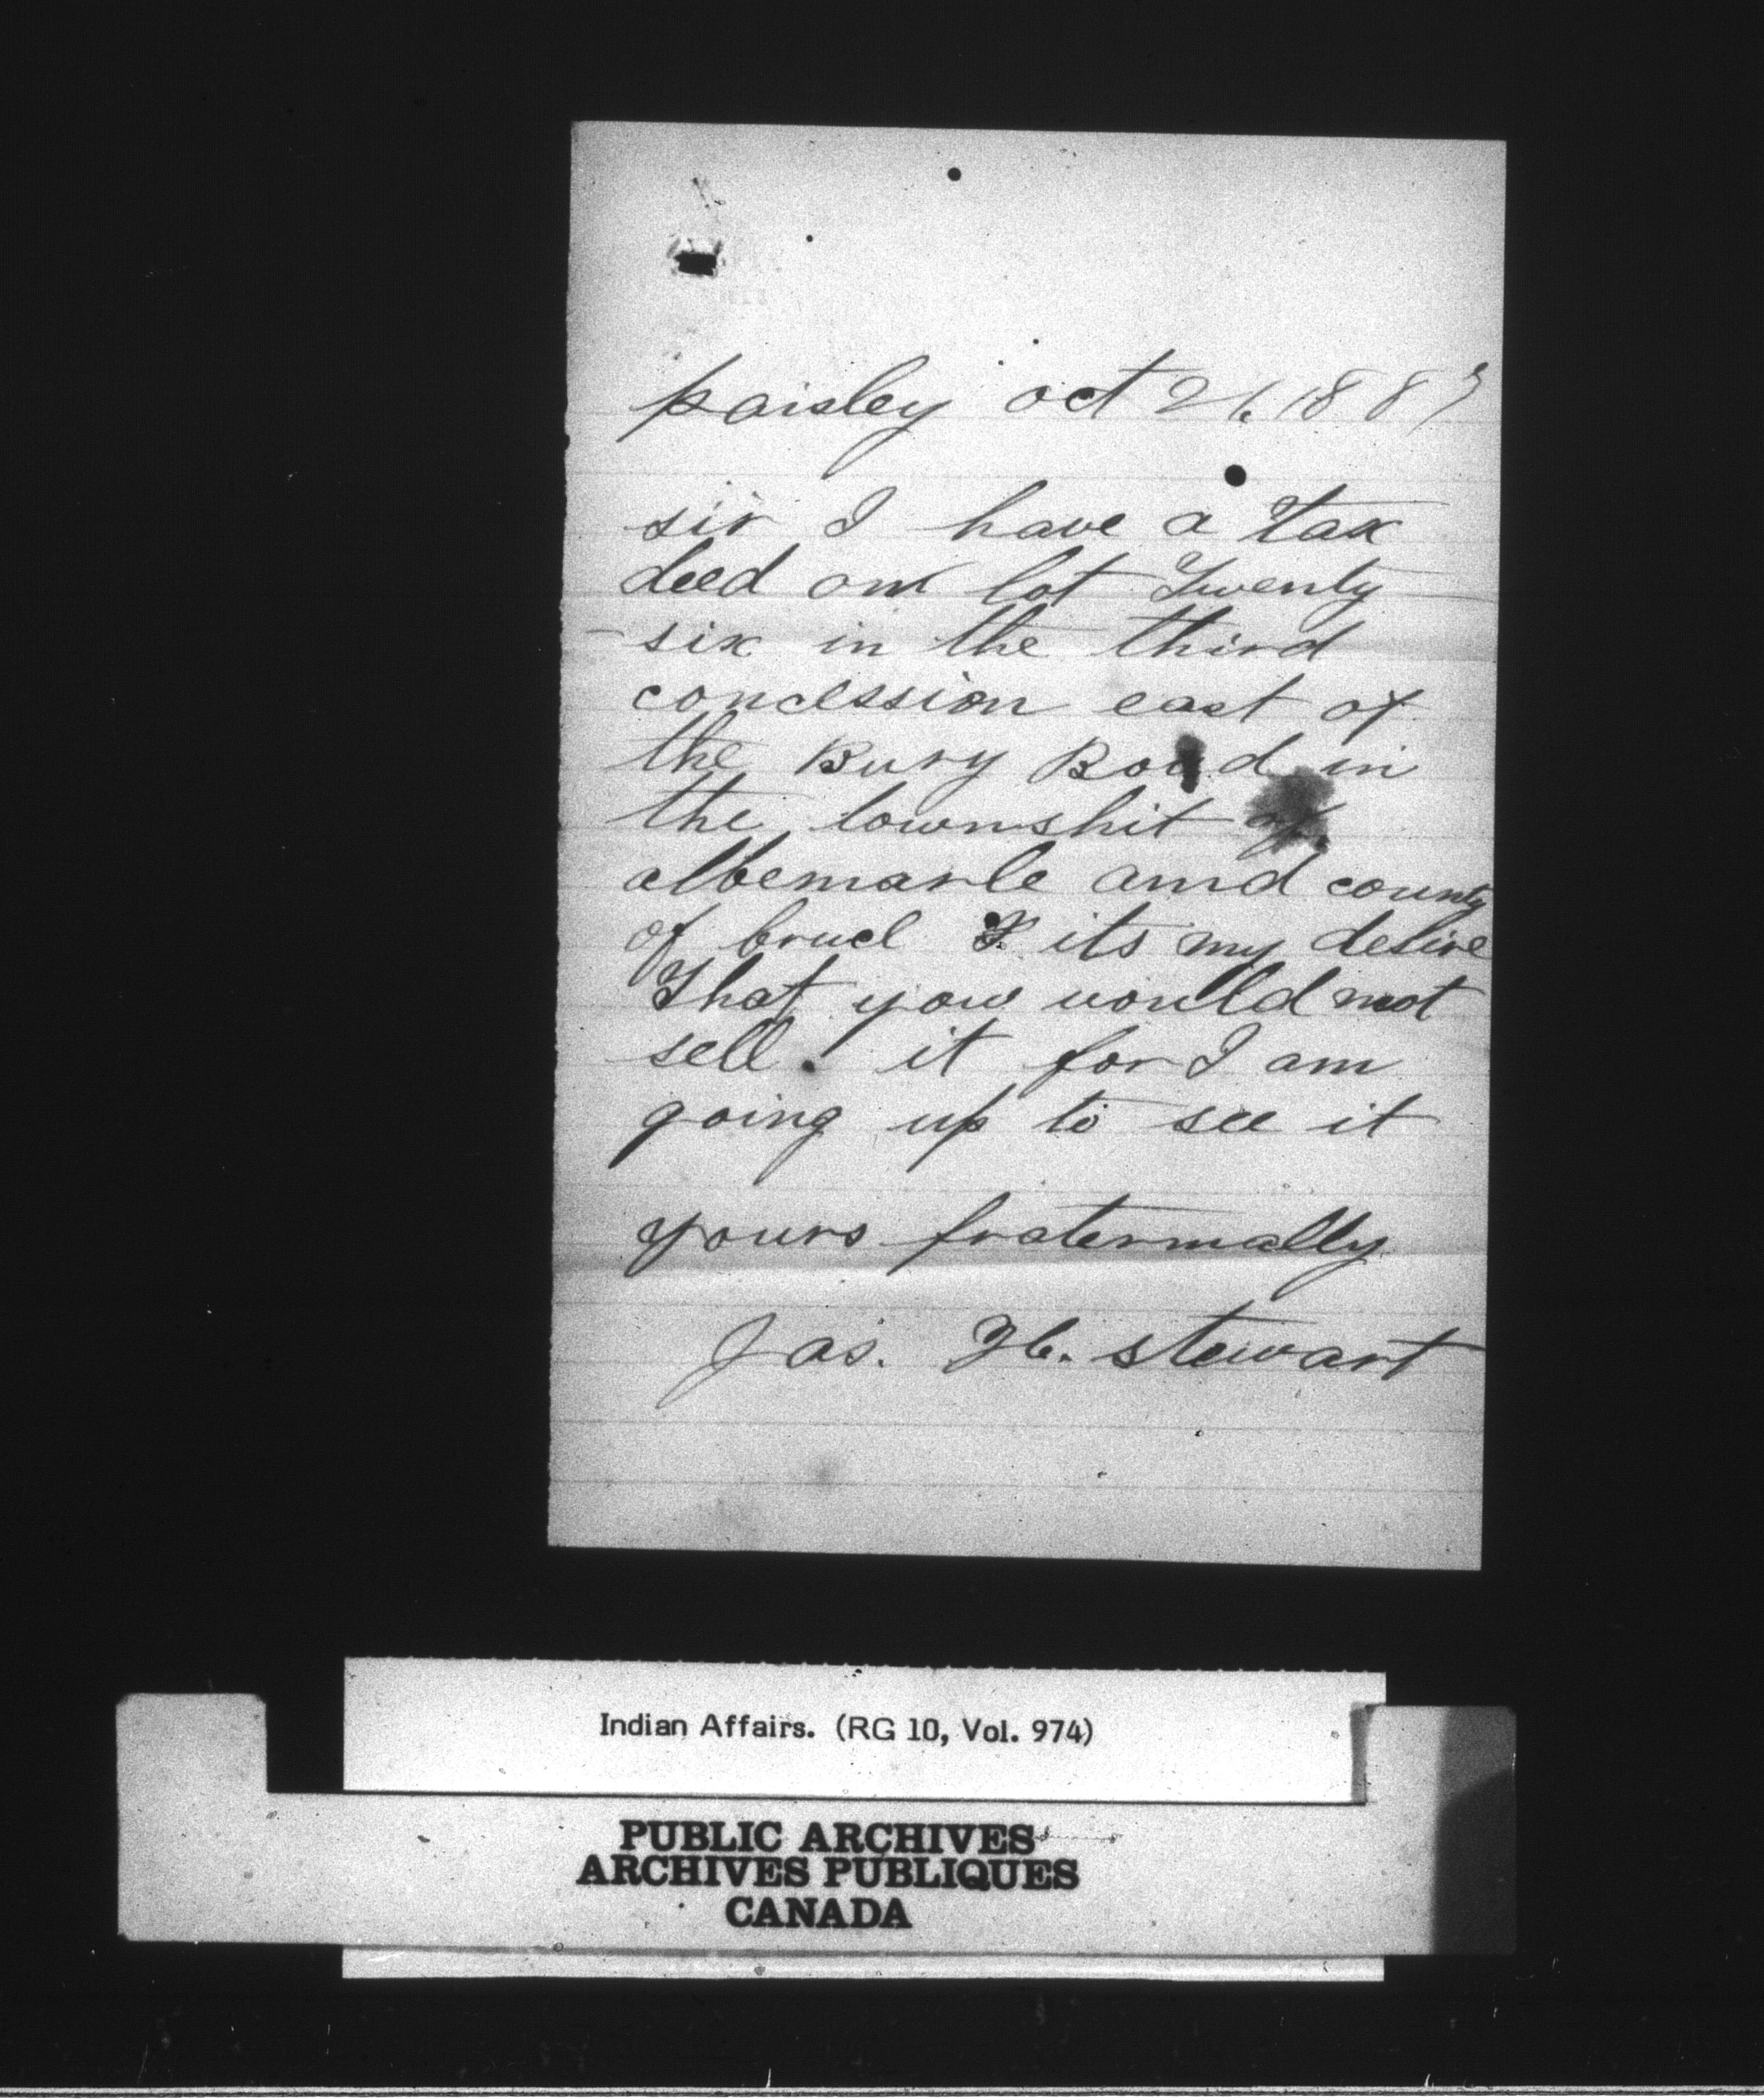 paisley oct 26 1887
sir I have a tax
deed on lot Twenty
six in the third
concession east of
the Bury Road in
the townshit of
albemarle and county
of bruce & its my desire
That you would not
sell it for I am
going up to see it
yours fraternally
Jas. H. stewart
Indian Affairs. (RG 10, Vol. 974)
PUBLIC ARCHIVES
ARCHIVES PUBLIQUES
CANADA